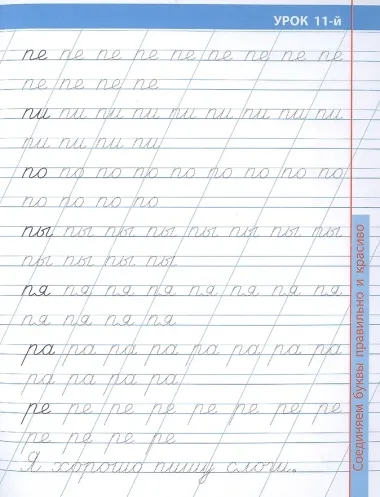 УРОК 11-й
пе пе пе пе пе пе пе пе пе
пе пе пе пе
пи пи пи пи пи пи пи пи пи
пи пи пи пи
по по по по по по по по по
по по по по
пы пы пы пы пы пы пы пы
пы пы пы пы
пя пя пя пя пя пя пя пя
пя пя пя пя
ра ра ра ра ра ра ра ра
ра ра ра ра
ре ре ре ре ре ре ре ре ре
ре ре ре ре
Я хорошо пишу слоги.
Соединяем буквы правильно и красиво